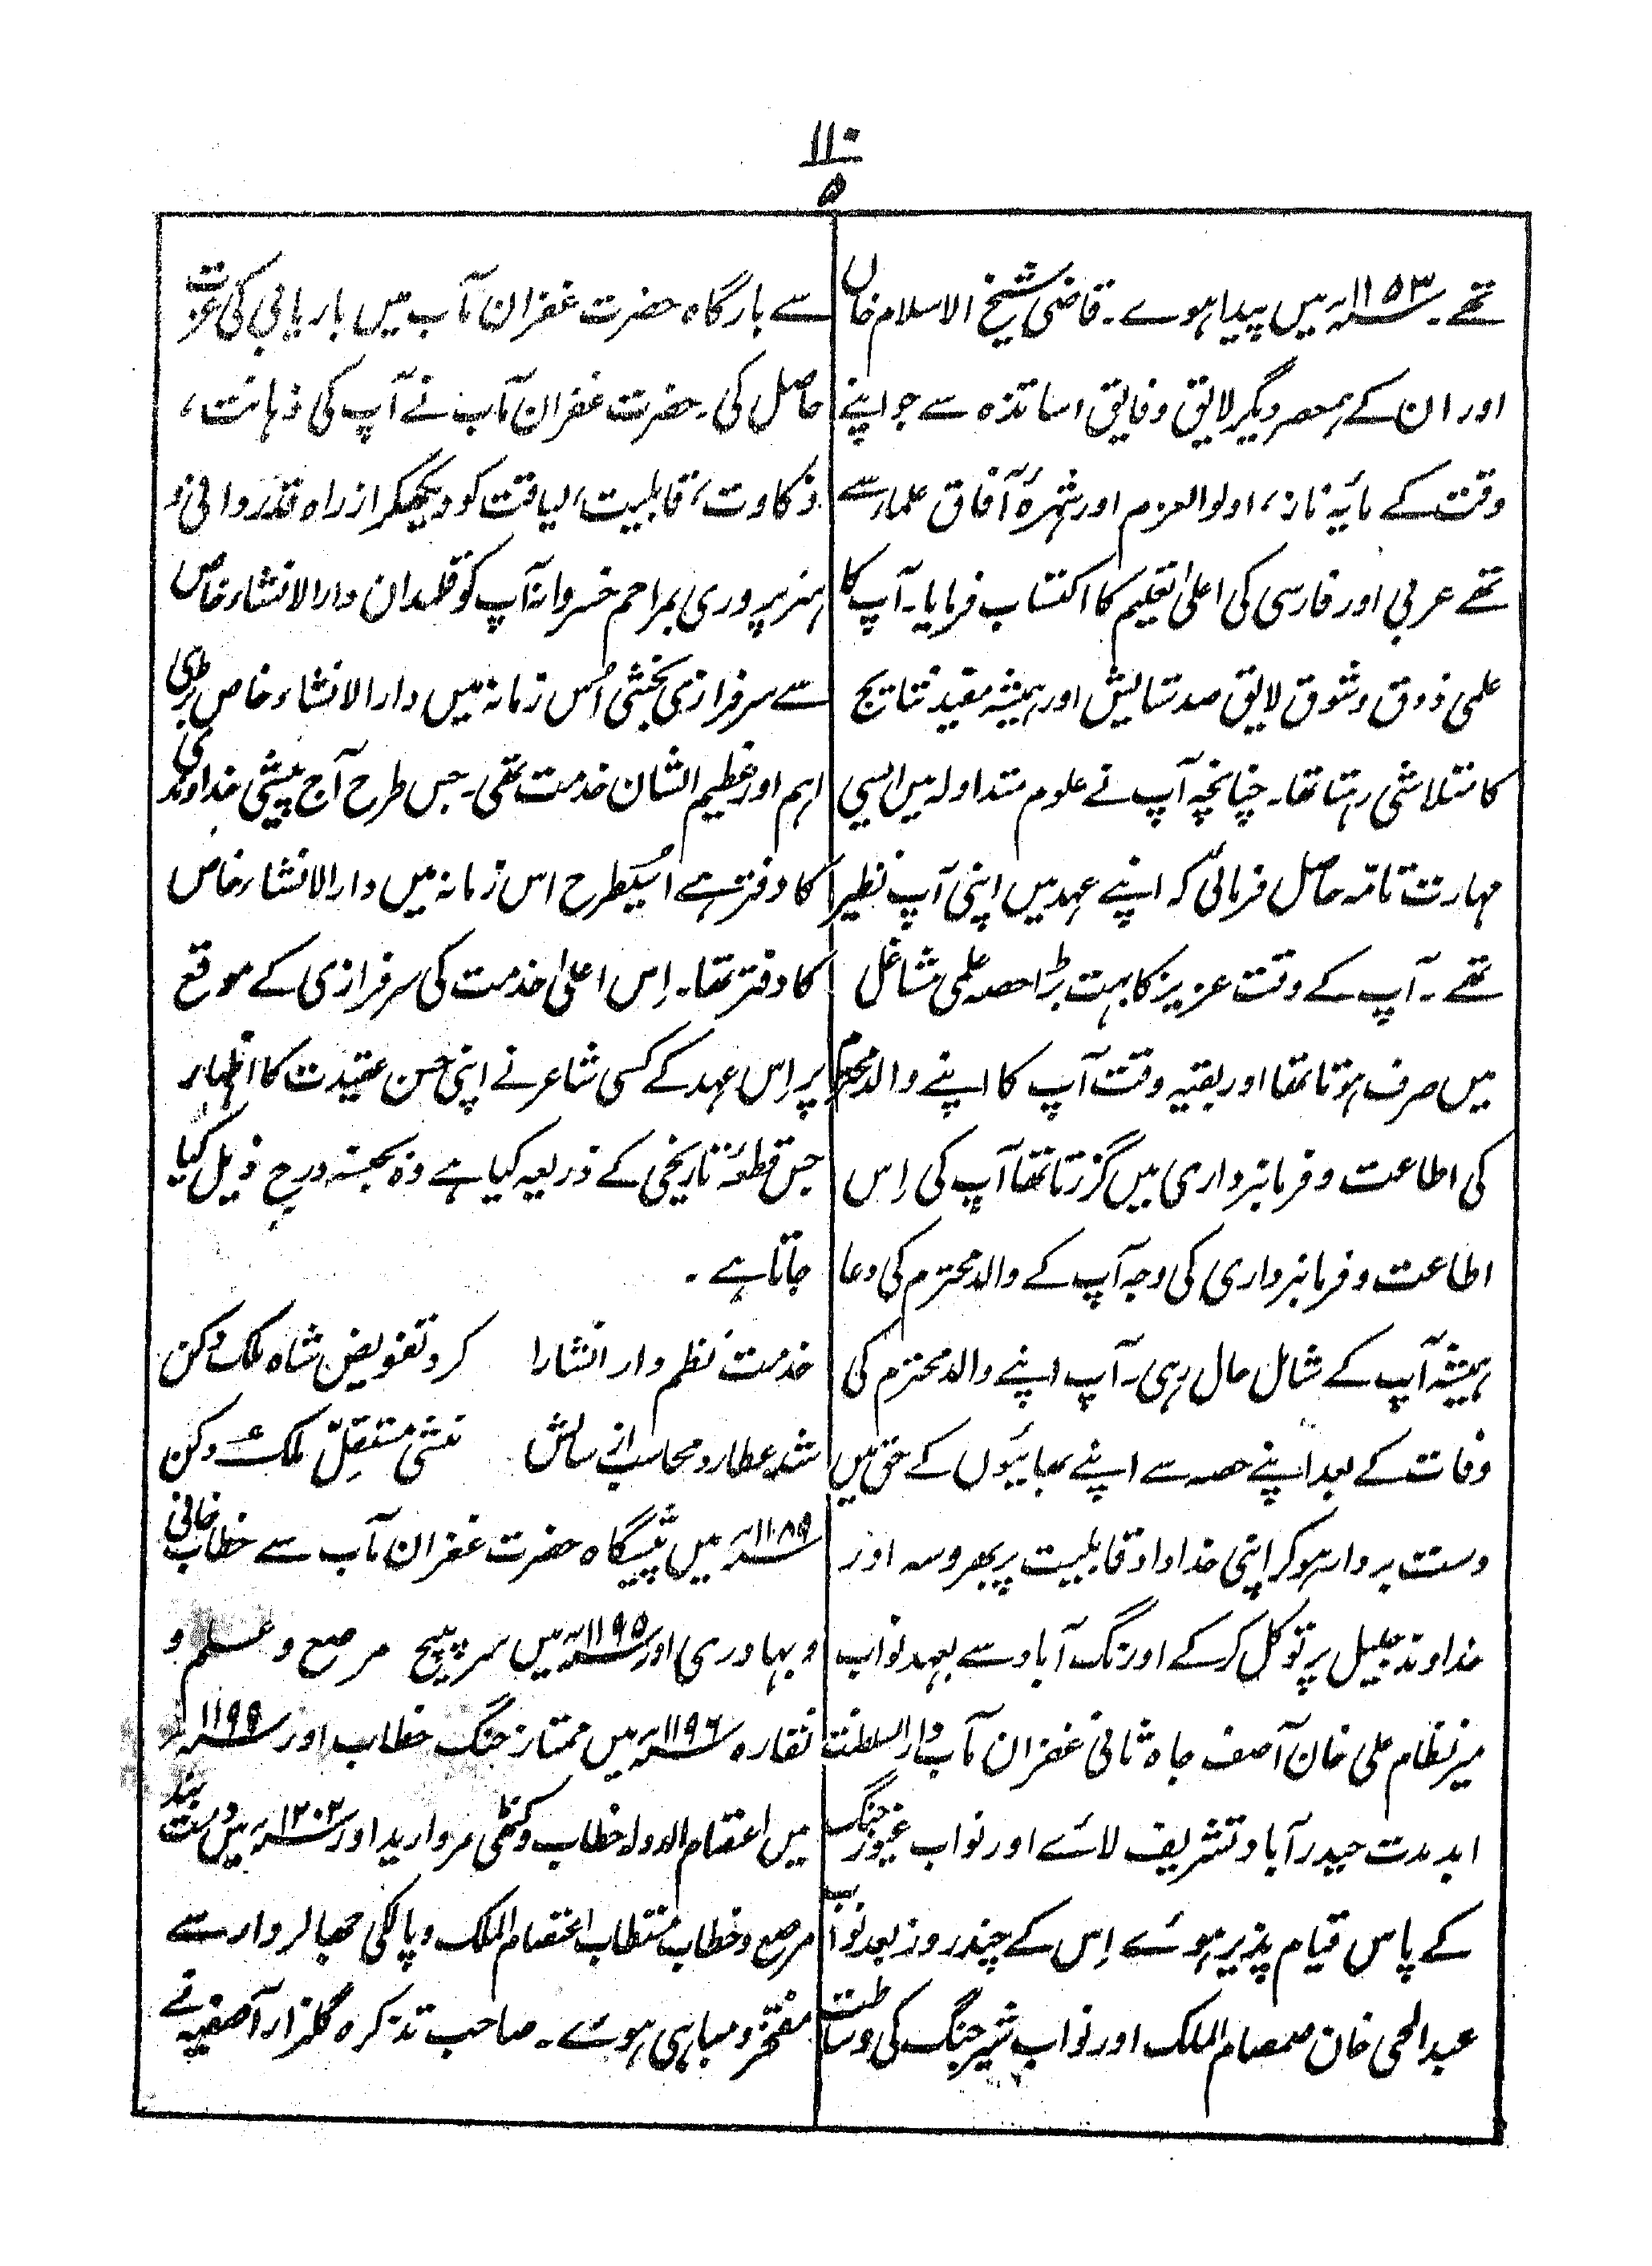 ۱۱۰
۵
تھے۔ ۱۱۵۳ھ میں پیدا ہوے۔ قاضی شیخ الاسلام خاں
اور ان کے ہمعصر دیگر لایق وفایق اساتذہ سے جو اپنے
وقت کے مائیہ ناز، اولوالعزم اور شہرۂ آفاق علماء سے
تھے عربی اور فارسی کی اعلیٰ تعلیم کا اکتساب فرمایا۔ آپ کا
علمی ذوق و شوق لایق صد ستایش اور ہمیشہ مفید نتایج
کا متلاشی رہتا تھا۔ چنانچہ آپ نے علوم متداولہ میں ایسی
مہارت تامہ حاصل فرمائی کہ اپنے عہد میں اپنی آپ نظیر
تھے۔ آپ کے وقت عزیز کا بہت بڑا حصہ علمی مشاغل
میں صرف ہوتا تھا اور بقیہ وقت آپ کا اپنے والد محترم
کی اطاعت و فرمانبرداری میں گزرتا تھا آپ کی اِس
اطاعت و فرمانبرداری کی وجہ آپ کے والد محترم کی دعا
ہمیشہ آپ کے شامل حال رہی۔ آپ اپنے والد محترم کی
وفات کے بعد اپنے حصہ سے اپنے بھائیوں کے حق میں
دست بردار ہوکر اپنی خداداد قابلیت پر بھروسہ اور
خداوند جلیل پر توکل کرکے اورنگ آباد سے بعہد نواب
میر نظام علی خان آصف جاہ ثانی غفران مآب دارالسلطنت
ابد مدت حیدرآباد تشریف لائے اور نواب غیور جنگ
کے پاس قیام پذیر ہوئے اِس کے چند روز بعد نواب
عبدالحی خان صمصام الملک اور نواب شیر جنگ کی وساطت
سے بارگاہ حضرت غفران مآب میں باریابی کی عزت
حاصل کی۔ حضرت غفران مآب نے آپ کی ذہانت،
ذکاوت، قابلیت، لیاقت کو دیکھکر از راہ قدردانی و
ہنر پروری بمراحم خسروانہ آپ کو قلمدان دارالانشاء خاص
سے سرفرازی بخشی اُس زمانہ میں دارالانشاء خاص بڑی
اہم اور عظیم الشان خدمت تھی۔ جس طرح آج پیشی خداوندی
کا دفتر ہے اُسیطرح اس زمانہ میں دارالانشاء خاص
کا دفتر تھا۔ اِس اعلیٰ خدمت کی سرفرازی کے موقع
پر اِس عہد کے کسی شاعر نے اپنی حسن عقیدت کا اظہار
جس قطعۂ تاریخی کے ذریعہ کیا ہے وہ بجنسہ درج ذیل کیا
جاتا ہے۔
خدمت نظم دار انشارا کرد تفویض شاہ ملک دکن
شد عطارد محاسب از سالش منشی مستقلِّ ملک دکن
۱۱۸۹ھ میں پیشگاہ حضرت غفران مآب سے خطاب خانی
و بہادری اور ۱۱۹۵ھ میں سرپیچ مرصع و علم و
نقارہ ۱۱۹۶ھ میں ممتاز جنگ خطاب اور ۱۱۹۹ھ
میں اعتصام الدولہ خطاب و کنٹھی مروارید اور ۱۲۰۲ھ میں دست بند
مرصع و خطاب مستطاب اعتصام الملک و پالکی جھالردار سے
مفتخر و مباہی ہوئے۔ صاحب تذکرہ گلزار آصفیہ نے